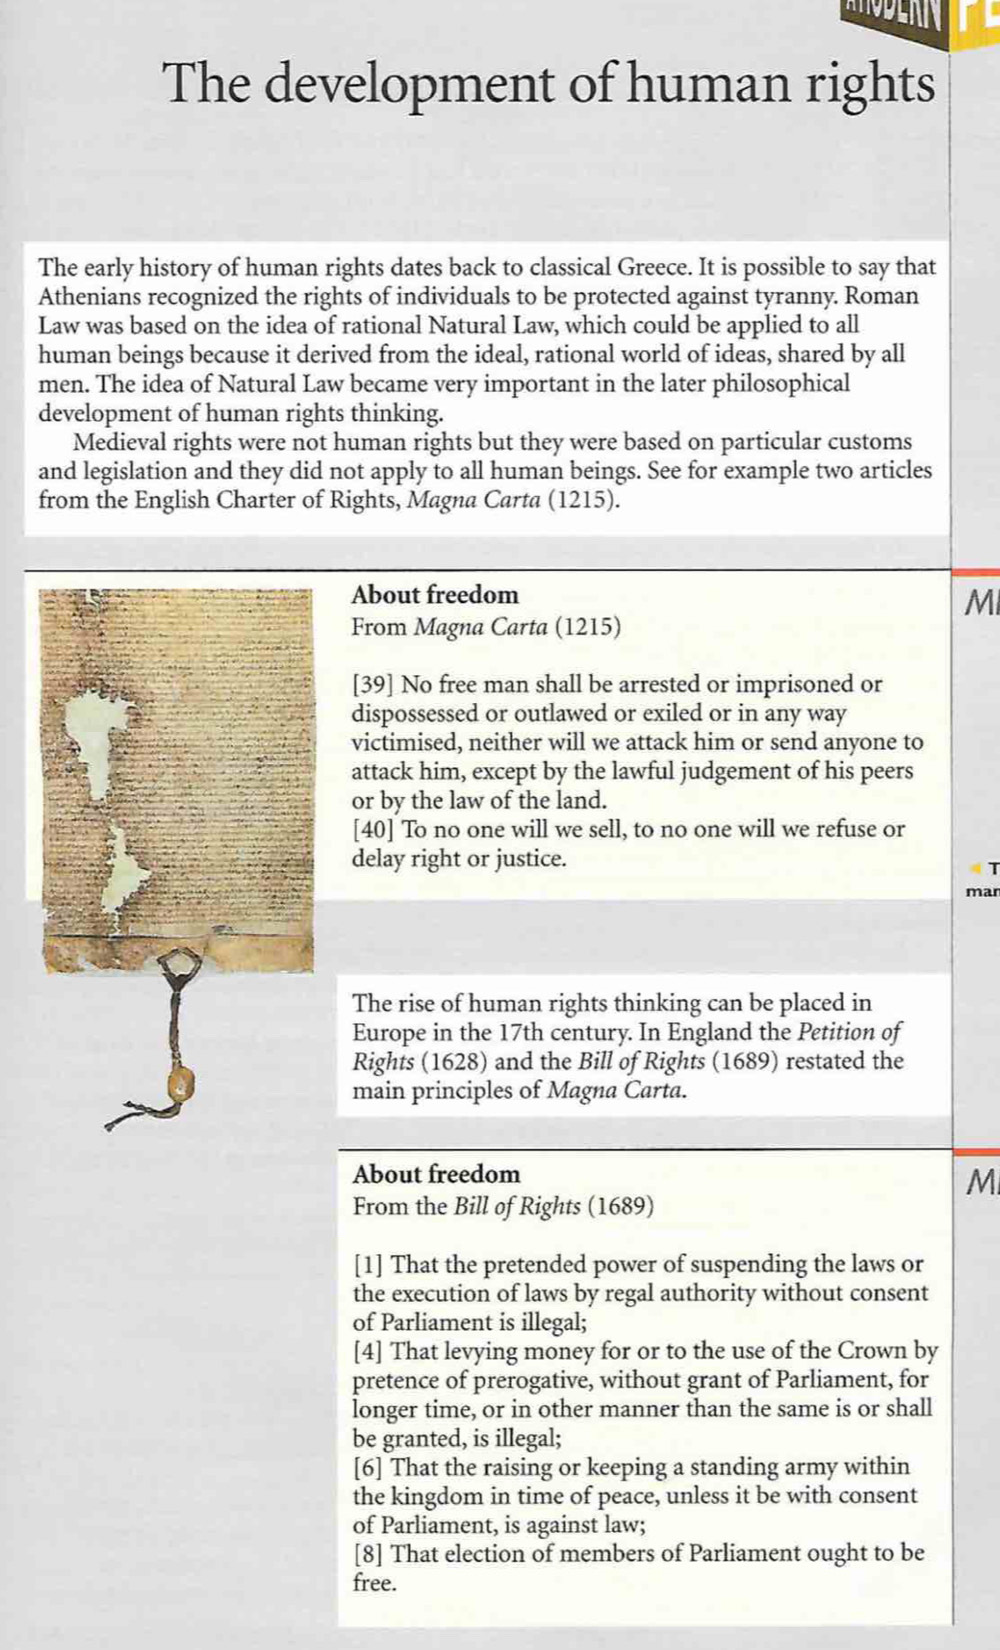 The development of human rights
The early history of human rights dates back to classical Greece. It is possible to say that
Athenians recognized the rights of individuals to be protected against tyranny. Roman
Law was based on the idea of rational Natural Law, which could be applied to all
human beings because it derived from the ideal, rational world of ideas, shared by all
men. The idea of Natural Law became very important in the later philosophical
development of human rights thinking.
Medieval rights were not human rights but they were based on particular customs
and legislation and they did not apply to all human beings. See for example two articles
from the English Charter of Rights, Magna Carta (1215).
About freedom
From Magna Carta (1215)
[39] No free man shall be arrested or imprisoned or
dispossessed or outlawed or exiled or in any way
victimised, neither will we attack him or send anyone to
attack him, except by the lawful judgement of his peers
or by the law of the land.
[40] To no one will we sell, to no one will we refuse or
delay right or justice.
The rise of human rights thinking can be placed in
Europe in the 17th century. In England the Petition of
Rights (1628) and the Bill of Rights (1689) restated the
main principles of Magna Carta.
About freedom
From the Bill of Rights (1689)
[1] That the pretended power of suspending the laws or
the execution of laws by regal authority without consent
of Parliament is illegal;
[4] That levying money for or to the use of the Crown by
pretence of prerogative, without grant of Parliament, for
longer time, or in other manner than the same is or shall
be granted, is illegal;
[6] That the raising or keeping a standing army within
the kingdom in time of peace, unless it be with consent
of Parliament, is against law;
[8] That election of members of Parliament ought to be
free.